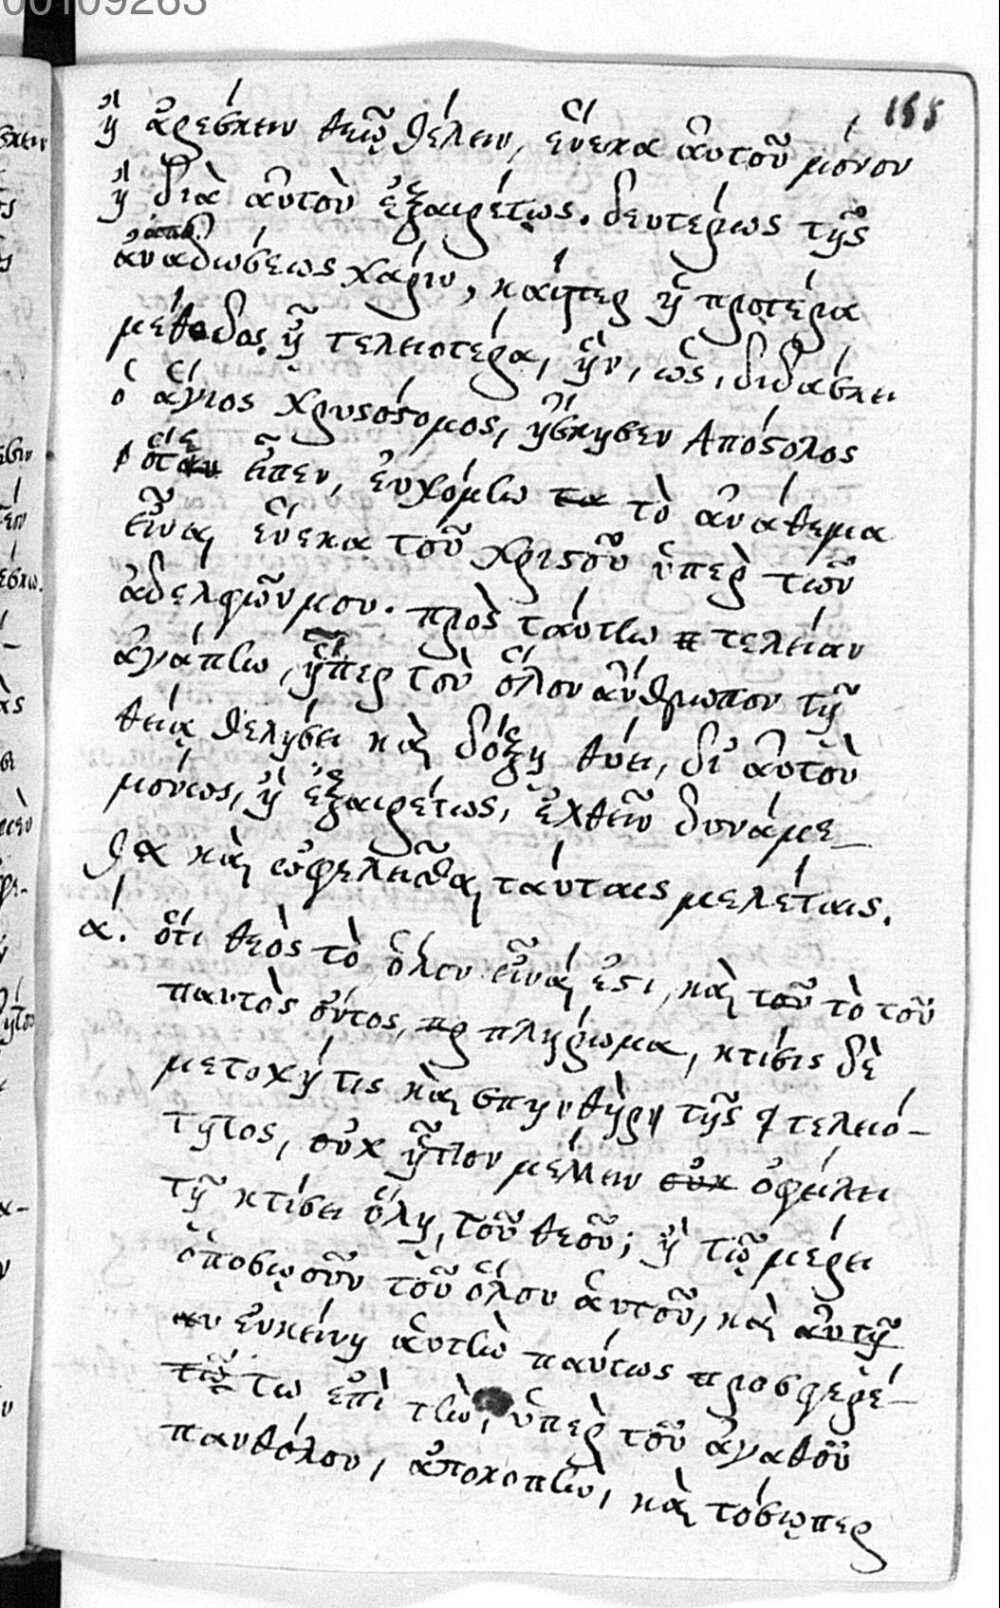 00109263
155
ἢ ἀρέσκειν θεῷ θέλειν, εἵνεκα αὐτοῦ μόνου
ἢ διὰ αὐτὸν ἐξαιρέτως. δευτέρως τῆς
ἀναδώσεως χάριν, καίπερ ἡ προτέρα
μέθοδος ᾖ τελειοτέρα, ἣν, ὡς, διδάσκει
ὁ ἅγιος Χρυσόστομος, ἤσκησεν Ἀπόστολος
ὅτε εἶπεν, εὐχόμην τα τὸ ἀνάθεμα
εἶναι εἵνεκα τοῦ Χριστοῦ ὑπὲρ τῶν
ἀδελφῶν μου. πρὸς ταύτην π τελείαν
ἀγάπην, ἥπερ τὸν ὅλον ἄνθρωπον τῇ
θείᾳ θελήσει καὶ δόξῃ θύει, δι' αὐτὸν
μόνως, ἢ ἐξαιρέτως, ἐλθεῖν δυνάμε-
θα καὶ ὠφελεῖσθαι ταύταις μελέταις.
α. ὅτι θεὸς τὸ ὅλον εἶναί ἐστι, καὶ τοῦ τὸ τοῦ
παντὸς ὄντος, πρ πλήρωμα, κτίσις δὲ
μετοχή τις καὶ σπινθὴρ τῆς τελειό-
τητος, οὐχ ἧττον μέλλειν οὐκ ὀφείλει
τῇ κτίσει ὅλῃ, τοῦ θεοῦ; ἢ τῷ μέρει
ὁποσῳοῦν τοῦ ὅλου αὐτοῦ, καὶ αὐτῇ
αν ἐνκείνῃ αὐτὴν πάντως προσφερέ-
τῷ τω ἐπὶ τὴν, ὑπὲρ τοῦ ἀγαθοῦ
πανθόλου, ἀποκοπὴν, καὶ τόσῳπερ